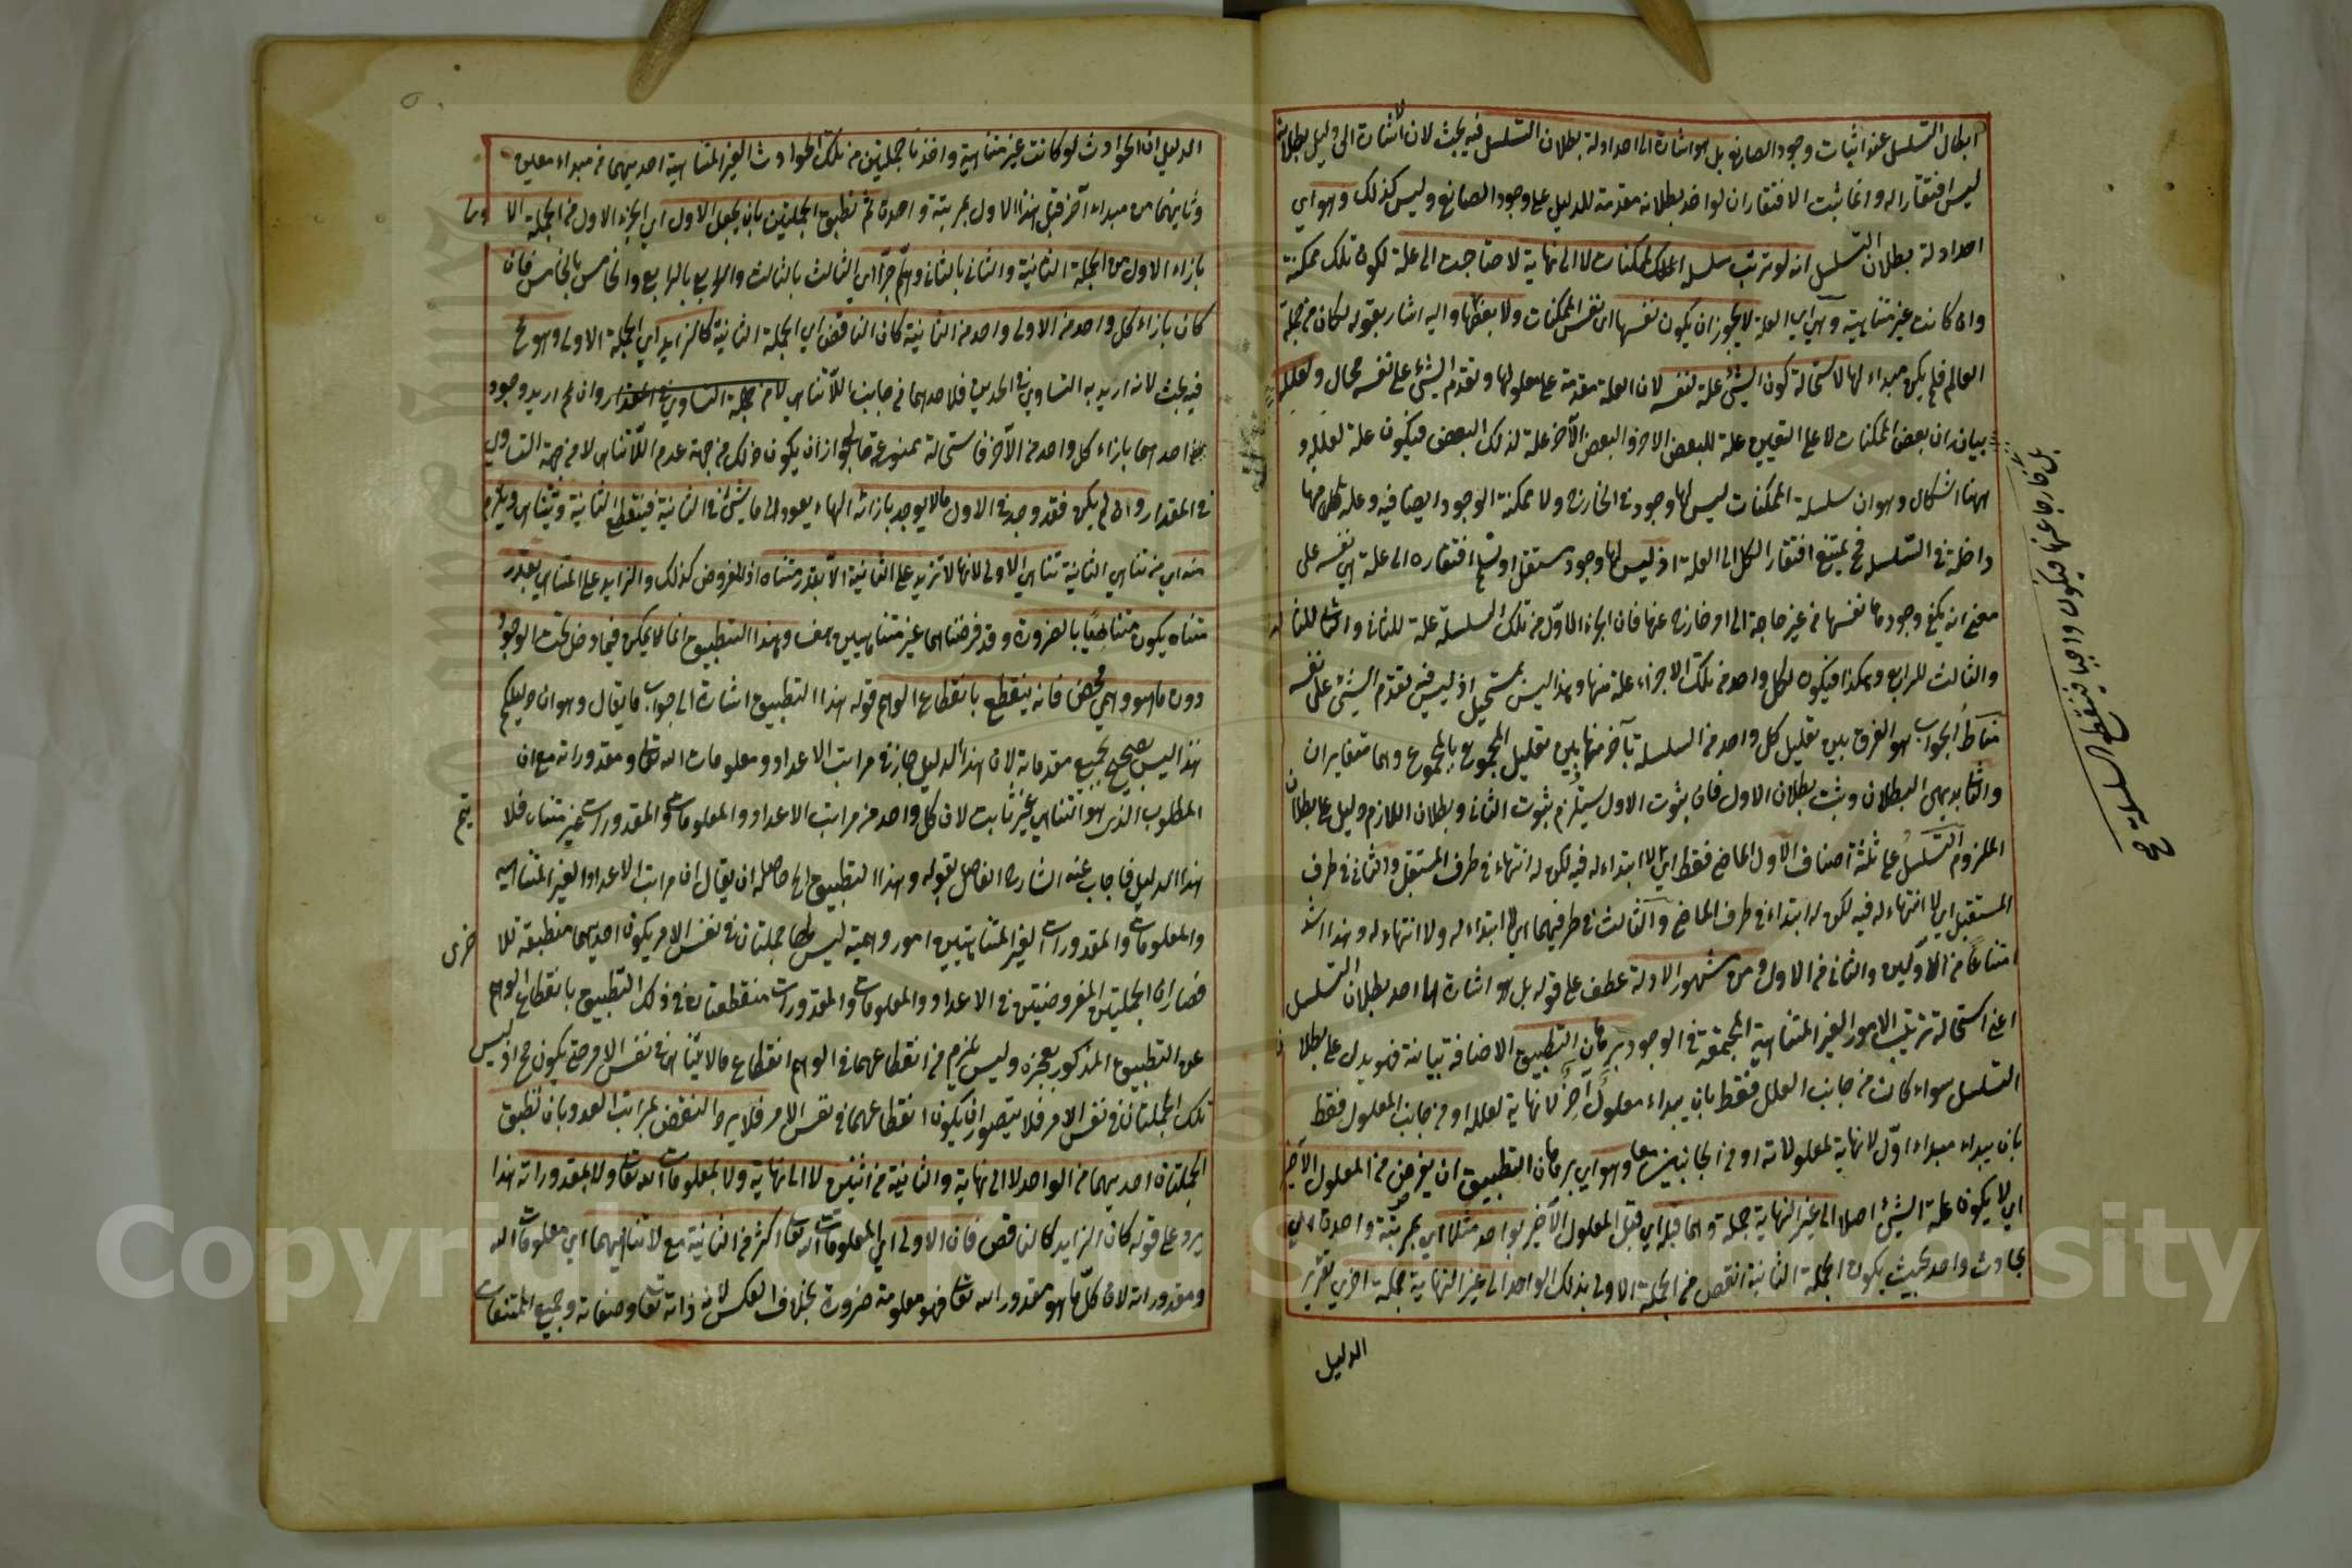 ابطال التسلسل عند اثبات وجود الصانع بل هو اشارة الى احد ادلة بطلان التسلسل فيه بحث لان الاشارة الى دليل بطلانه
ليس افتقارا له وانما ثبت الافتقار ان لو اخذ بطلانه مقدمة للدليل على وجود الصانع وليس كذلك وهو اي
احد ادلة بطلان التسلسل انه لو ترتب سلسلة الممكنات لا الى نهاية لاحتاجت الى علة لكون تلك ممكنة
وان كانت غير متناهية وهي اي العلة لا يجوز ان يكون نفسها اى نفس الممكنات ولا بعضها واليه اشار بقوله لكان من جملة
العالم فلم يكن مبداء لها لاستحالة كون الشئ علة لنفسه لان العلة مقدمة على معلولها وتقدم الشئ على نفسه محال ولعلله
بيانه ان بعض الممكنات لا على التعيين علة للبعض الاخر والبعض الآخر علة لذلك البعض فيكون علة لعلله و
ههنا اشكال وهو ان سلسلة الممكنات ليس لها وجود في الخارج ولا ممكنة الوجود ايضا فيه وعلة كل منها
داخلة في التسلسل فح يمتنع افتقار الكل الى العلة اذ ليس لها وجود مستقل ولو سلم افتقاره الى علة اي نفسه على
معنى انه يكفي وجودها نفسها من غير حاجة الى امر خارج عنها فان الجزء الاول من تلك السلسلة علة للثاني والثاني للثالث
والثالث للرابع وهكذا فيكون لكل واحد من تلك الاجزاء علة منها وهذا ليس بمستحيل اذ ليس فيه تقدم الشئ على نفسه
مناط الجواب هو الفرق بين تعليل كل واحد من السلسلة بآخر منها وبين تعليل المجموع بالمجموع وهما متغايران
والثاني بديهي البطلان وثبت بطلان الاول فان ثبوت الاول يستلزم ثبوت الثاني وبطلان اللازم دليل على بطلان
الملزوم التسلسل على ثلثة اصناف الاول الماضي فقط اي لا ابتداء له فيه لكن له انتهاء في طرف المستقبل والثاني في طرف
المستقبل اي لا انتهاء له فيه لكن له ابتداء في طرف الماضي والثالث في طرفيهما اي لا ابتداء له ولا انتهاء له وهذا اشد
امتناعا من الاولين والثاني من الاول ومن مشهور الادلة عطف على قوله بل هو اشارة الى احد بطلان التسلسل
اعني استحالة ترتيب الامور الغير المتناهية المجتمعة في الوجود برهان التطبيق الاضافة بيانية فهو يدل على بطلان
التسلسل سواء كانت من جانب العلل فقط بان يبداء معلول آخر لا نهاية لعلله او من جانب المعلول فقط
بان يبداء مبداء اول لا نهاية لمعلولاته او من الجانبين معا وهو اي برهان التطبيق ان يفرض من المعلول الاخير
اي لا يكون علة الشئ اصلا الى غير النهاية جملة ومما قبله اي قبل المعلول الآخير بواحد مثلا اي بمرتبة واحدة اي
بحادث واحد بحيث يكون الجملة الثانية انقص من الجملة الاولى بذلك الواحد الى غير النهاية جملة اخرى تقرير
الدليل
الدليل ان الحوادث لو كانت غير متناهية واخذنا جملتين من تلك الحوادث الغير المتناهية احديهما من مبداء معين
وثانيهما من مبداء آخر قبل هذا الاول بمرتبة واحدة ثم نطبق الجملتين بان يجعل الاول اي الجزء الاول من الجملة الاولى
بازاء الاول من الجملة الثانية والثاني بالثاني وهلم جرا اي الثالث بالثالث والرابع بالرابع والخامس بالخامس فان
كان بازاء كل واحد من الاولى واحد من الثانية كان الناقص اي الجملة الثانية كالزايد اي الجملة الاولى وهو مح
فيه بحث لانه اريد به التساوي في الحدين فلا حد لهما في جانب اللاتناهي لا من جملة التساوي في المقدار وان لم اريد وجود
احدهما بازاء كل واحد من الآخر فاستحالة ممنوعة لجواز ان يكون ذلك من جهة عدم اللاتناهي لا من جهة التساوي
في المقدار وان لم يكن فقد وجد في الاولى ما لا يوجد بازائه الهاء يعود الى ما شئ في الثانية فينقطع الثانية ويتناهى ويلزم
منه اي من تناهي الثانية تناهي الاولى لانها لا تزيد على الثانية الا بقدر متناه اذ المفروض كذلك والزايد على المتناهي بقدر
متناه يكون متناهيا بالضرورة وقد فرضناهما غير متناهيين هف وهذا التطبيق انما يمكن فيما دخل تحت الوجود
دون ما هو وهمي محض فانه ينقطع بانقطاع الوهم قوله هذا التطبيق اشارة الى جواب ما يقال وهو ان دليلكم
هذا ليس بصحيح بجميع مقدماته لان هذا الدليل جاز في مراتب الاعداد ومعلومات الله تعالى ومقدوراته مع ان
المطلوب الذي هو التناهي غير ثابت لان كل واحد من مراتب الاعداد والمعلومات والمقدورات غير متناه فلا يتم
هذا الدليل فاجاب عنه الشارح الفاضل بقوله وهذا التطبيق الخ حاصله ان يقال ان مراتب الاعداد الغير المتناهية
والمعلومات والمقدورات الغير المتناهيين امور وهمية ليس لها جملتان في نفس الامر يكون احديهما منطبقة للاخرى
فصار ان الجملتين المفروضتين في الاعداد والمعلومات والمقدورات منقطعتان في ذلك التطبيق بانقطاع الوهم
عن التطبيق المذكور بعجزه وليس يلزم من انقطاعهما في الوهم انقطاع ما لا يتناهى في نفس الامر حتى يكون مح اذ ليس
تلك الجملتان في نفس الامر فلا يتصور ان يكون انقطاعهما في نفس الامر فلا يرد النقض بمراتب العدد بان نطبق
الجملتان احديهما من الواحد لا الى نهاية والثانية من اثنين لا الى نهاية ولا بمعلومات الله تعالى ولا بمقدوراته هذا
يرد على قوله كان الزايد كالناقص فان الاولى اي المعلومات الله تعالى اكثر من الثانية مع لا تناهيهما اي معلومات الله
ومقدوراته لان كل ما هو مقدور الله تعالى فهو معلومة ضرورة بخلاف العكس لانه ذاته تعالى وصفاته وجميع الممتنعات
Copyright © King Saud University